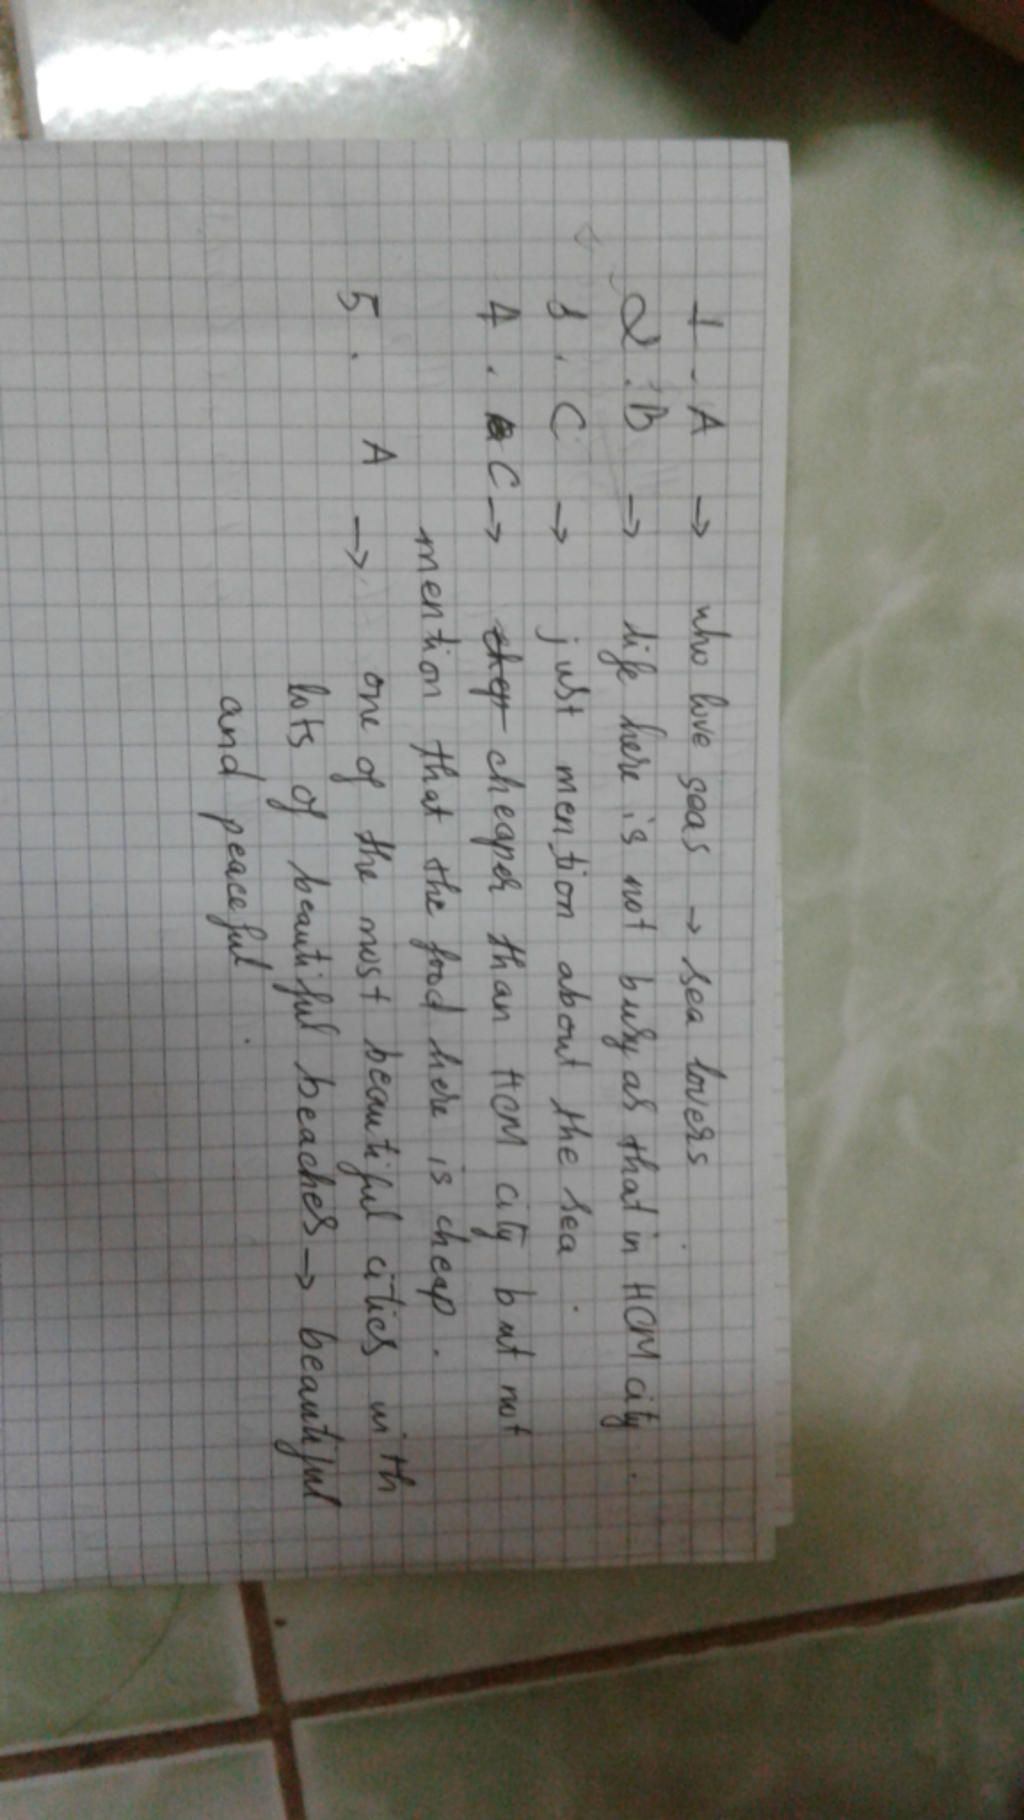 1. A → who love seas → sea lovers
2. B → life here is not busy as that in HCM city.
3. C → just mention about the sea.
4. C → chep cheaper than HCM city but not
mention that the food here is cheap.
5. A → one of the most beautiful cities with
lots of beautiful beaches → beautiful
and peaceful.